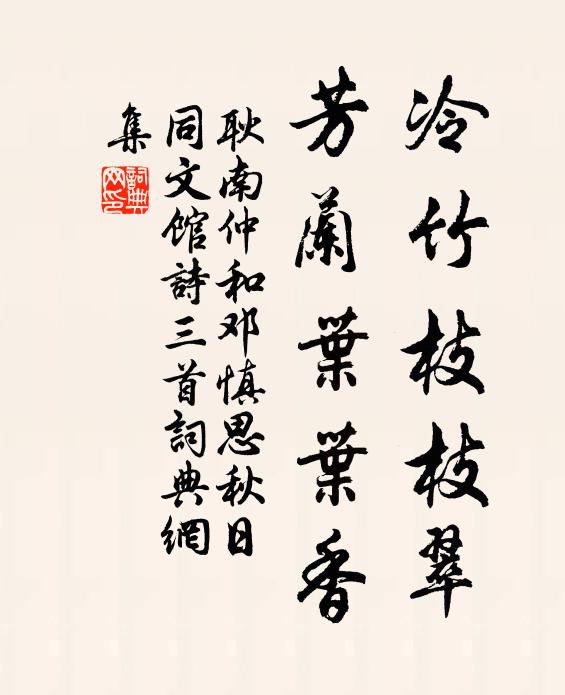 冷竹枝枝翠
芳蘭葉葉香
耿南仲和邓慎思秋日
同文館詩三首詞典網
集
詞典
网印